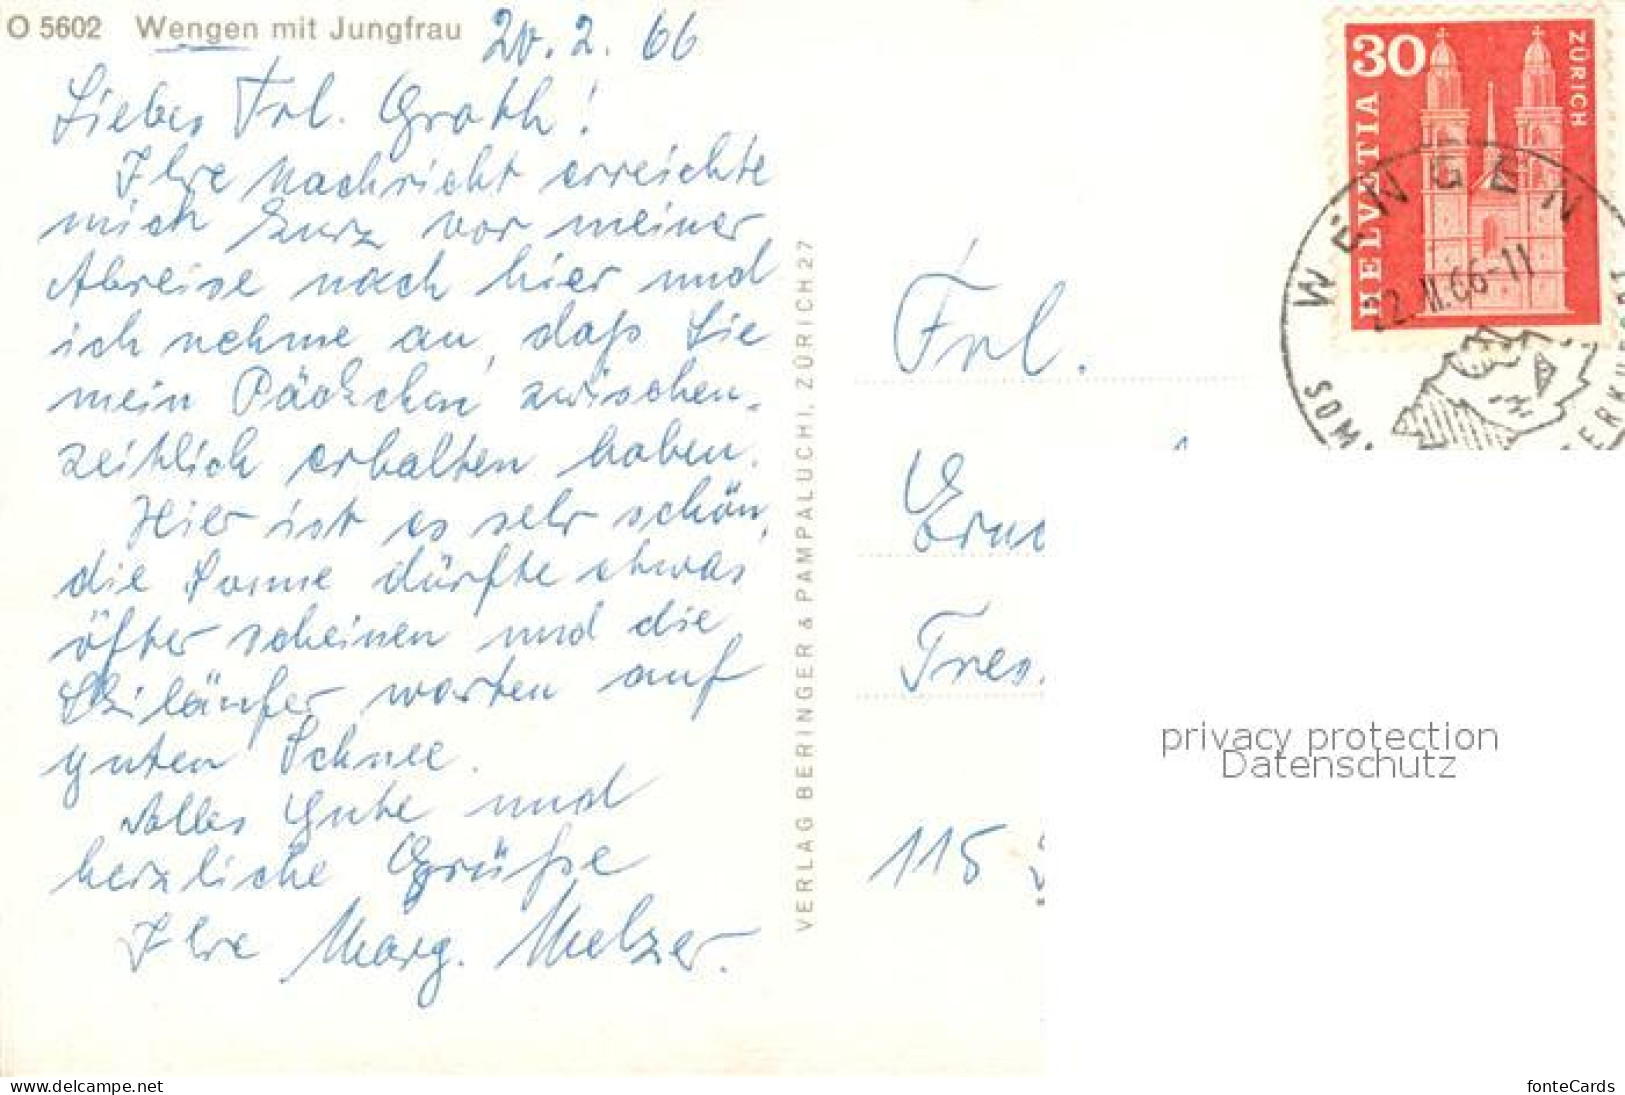 O 5602 Wengen mit Jungfrau 20.2.66
Liebes Frl. Groth!
Ihre Nachricht erreichte
mich kurz vor meiner
Abreise nach hier und
ich nehme an, daß Sie
mein Päckchen zwischen-
zeitlich erhalten haben.
Hier ist es sehr schön,
die Sonne dürfte etwas
öfter scheinen und die
Skiläufer warten auf
guten Schnee.
Alles Gute und
herzliche Grüße
Ihre Marg. Melzer.
VERLAG BERINGER & PAMPALUCHI, ZÜRICH 27
30
HELVETIA
ZÜRICH
WENGEN
22.II.66-11
SOM
ERKUR
Frl.
Tres
115
privacy protection
Datenschutz
www.delcampe.net
fonteCards